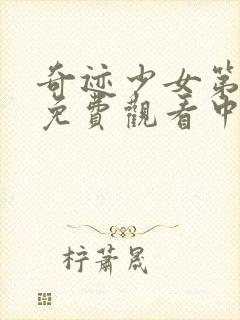 奇迹少女第
免費觀看中
柠萧晟